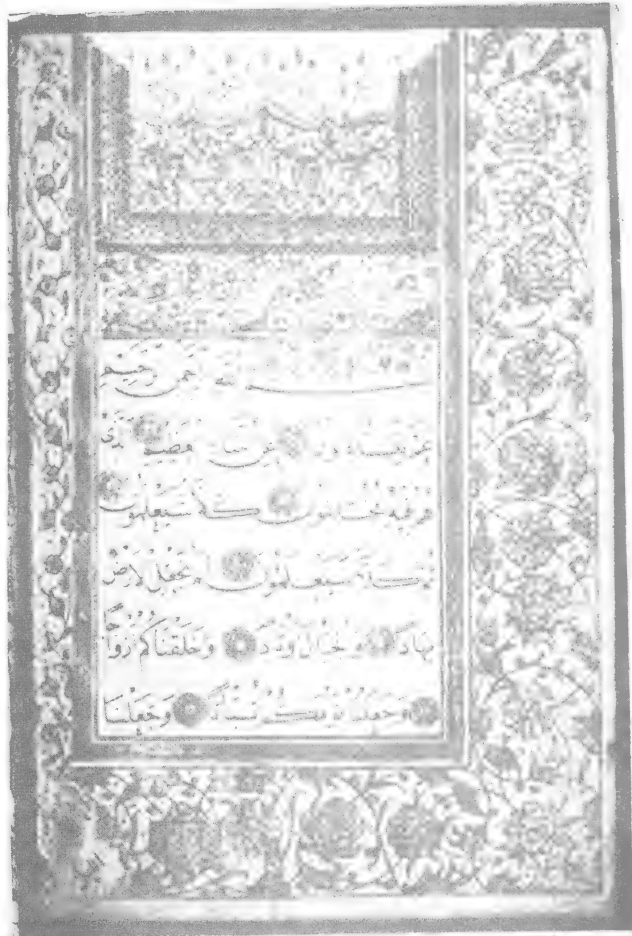 بِسْمِ اللَّهِ الرَّحْمٰنِ الرَّحِيمِ
عَمَّ يَتَسَاءَلُونَ عَنِ النَّبَإِ الْعَظِيمِ الَّذِي
هُمْ فِيهِ مُخْتَلِفُونَ كَلَّا سَيَعْلَمُونَ
ثُمَّ كَلَّا سَيَعْلَمُونَ أَلَمْ نَجْعَلِ الْأَرْضَ
مِهَادًا وَالْجِبَالَ أَوْتَادًا وَخَلَقْنَاكُمْ أَزْوَاجًا
وَجَعَلْنَا نَوْمَكُمْ سُبَاتًا وَجَعَلْنَا